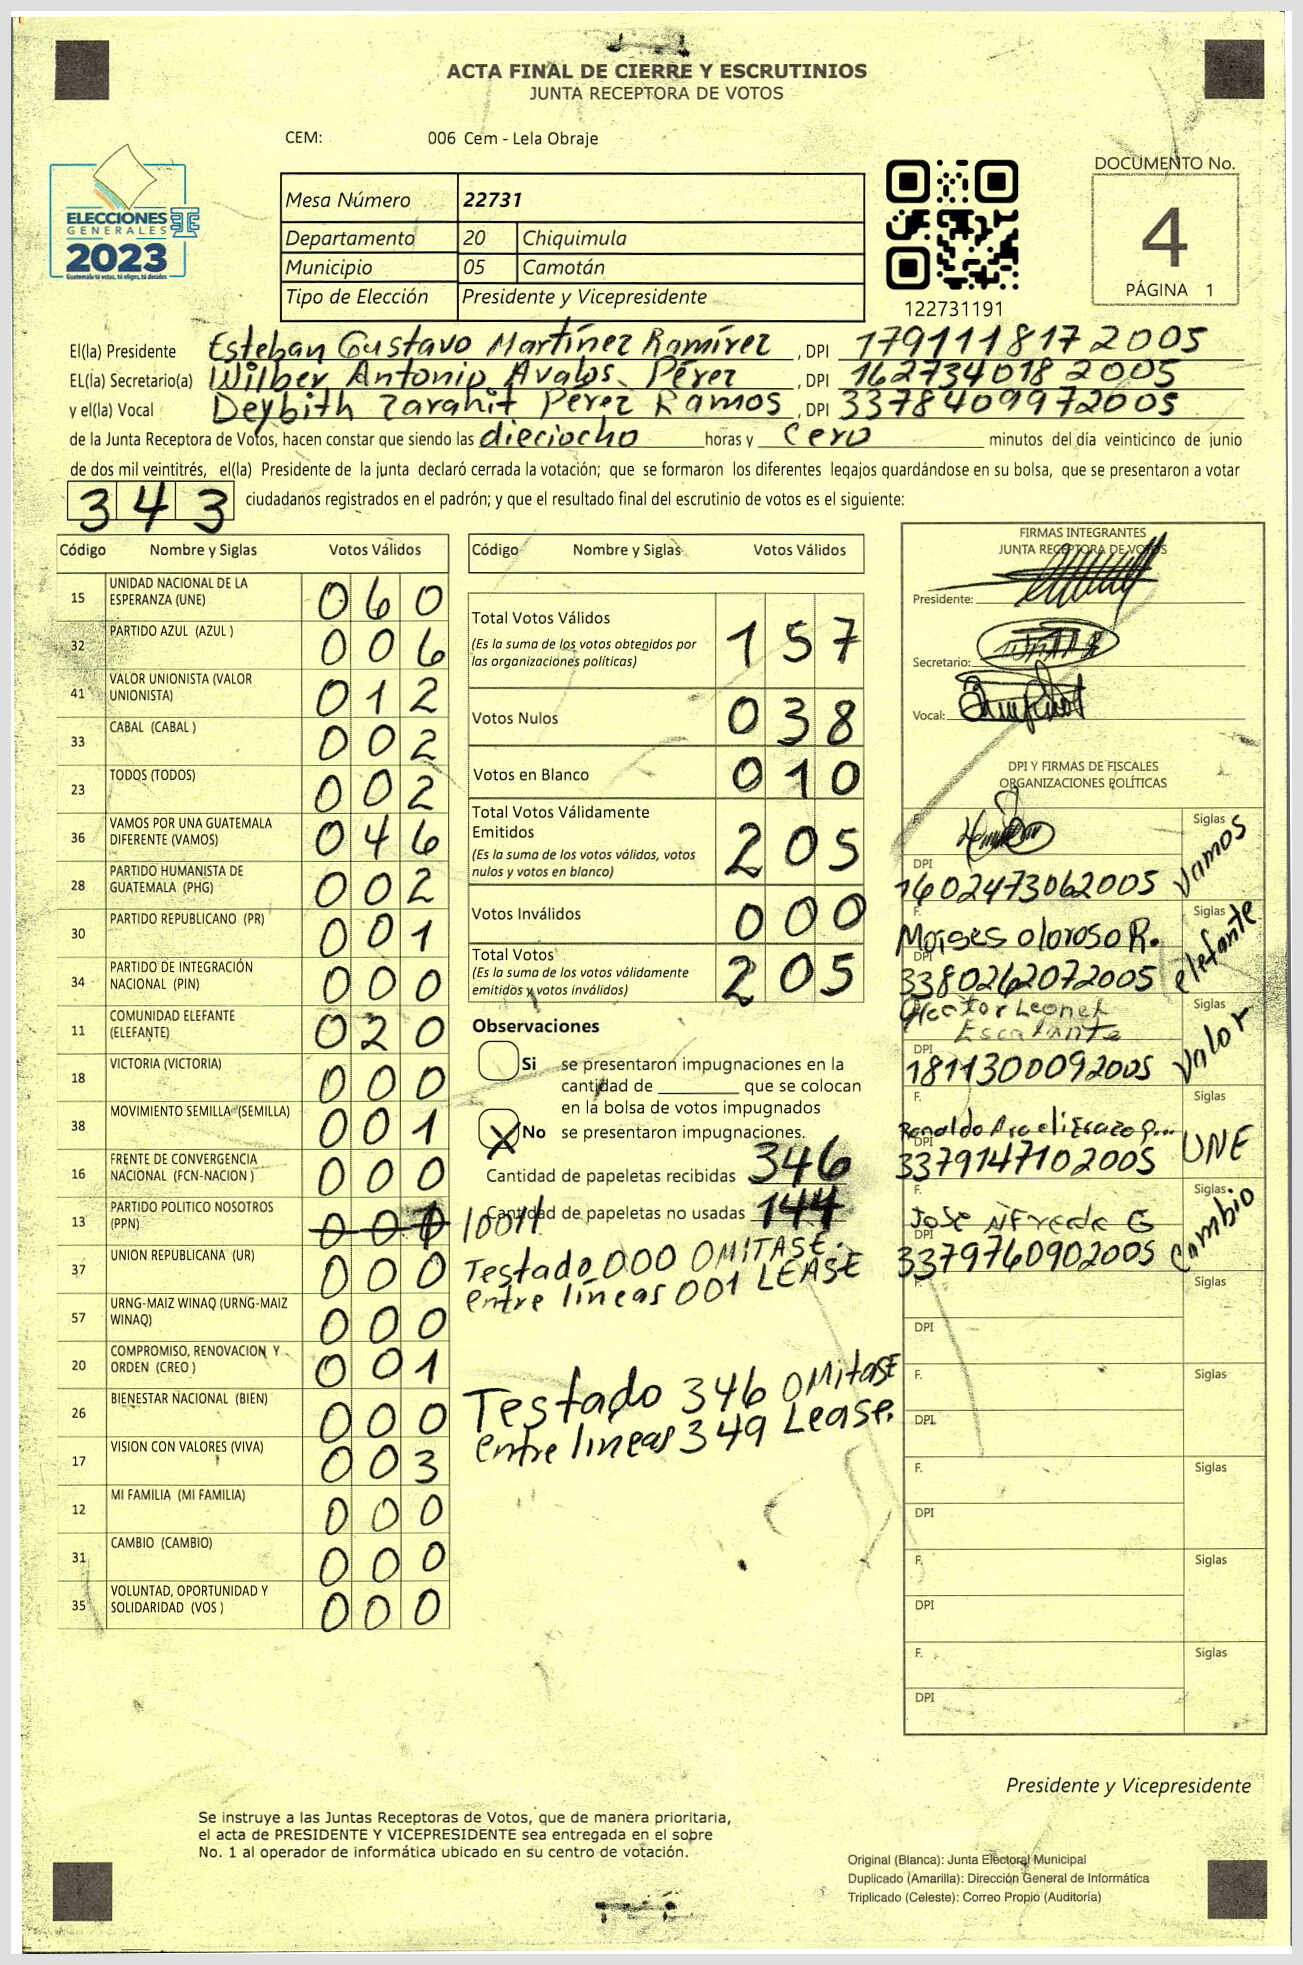 ACTA FINAL DE CIERRE Y ESCRUTINIOS
JUNTA RECEPTORA DE VOTOS
CEM: 006 Cem - Lela Obraje
ELECCIONES
GENERALES
2023
Guatemala tú votas, tú eliges, tú decides
Mesa Número 22731
Departamento 20 Chiquimula
Municipio 05 Camotán
Tipo de Elección Presidente y Vicepresidente
122731191
DOCUMENTO No.
4
PÁGINA 1
El(la) Presidente Esteban Gustavo Martínez Ramírez, DPI 1791118172005
EL(la) Secretario(a) Wilber Antonio Avalos Pérez, DPI 1627340182005
y el(la) Vocal Deybith Zarahit Pérez Ramos, DPI 3378409972005
de la Junta Receptora de Votos, hacen constar que siendo las dieciocho horas y cero minutos del día veinticinco de junio
de dos mil veintitrés, el(la) Presidente de la junta declaró cerrada la votación; que se formaron los diferentes legajos quardándose en su bolsa, que se presentaron a votar
343 ciudadanos registrados en el padrón; y que el resultado final del escrutinio de votos es el siguiente:
Código Nombre y Siglas Votos Válidos
15 UNIDAD NACIONAL DE LA ESPERANZA (UNE) 060
32 PARTIDO AZUL (AZUL ) 006
41 VALOR UNIONISTA (VALOR UNIONISTA) 012
33 CABAL (CABAL ) 002
23 TODOS (TODOS) 002
36 VAMOS POR UNA GUATEMALA DIFERENTE (VAMOS) 046
28 PARTIDO HUMANISTA DE GUATEMALA (PHG) 002
30 PARTIDO REPUBLICANO (PR) 001
34 PARTIDO DE INTEGRACIÓN NACIONAL (PIN) 000
11 COMUNIDAD ELEFANTE (ELEFANTE) 020
18 VICTORIA (VICTORIA) 000
38 MOVIMIENTO SEMILLA (SEMILLA) 001
16 FRENTE DE CONVERGENCIA NACIONAL (FCN-NACION ) 000
13 PARTIDO POLITICO NOSOTROS (PPN)
37 UNION REPUBLICANA (UR) 000
57 URNG-MAIZ WINAQ (URNG-MAIZ WINAQ) 000
20 COMPROMISO, RENOVACION Y ORDEN (CREO ) 001
26 BIENESTAR NACIONAL (BIEN) 000
17 VISION CON VALORES (VIVA) 003
12 MI FAMILIA (MI FAMILIA) 000
31 CAMBIO (CAMBIO) 000
35 VOLUNTAD, OPORTUNIDAD Y SOLIDARIDAD (VOS ) 000
Código Nombre y Siglas Votos Válidos
Total Votos Válidos 157
(Es la suma de los votos obtenidos por
las organizaciones políticas)
Votos Nulos 038
Votos en Blanco 010
Total Votos Válidamente
Emitidos 205
(Es la suma de los votos válidos, votos
nulos y votos en blanco)
Votos Inválidos 000
Total Votos 205
(Es la suma de los votos válidamente
emitidos y votos inválidos)
Observaciones
Si se presentaron impugnaciones en la
cantidad de ________ que se colocan
en la bolsa de votos impugnados
X No se presentaron impugnaciones.
Cantidad de papeletas recibidas 346
Cantidad de papeletas no usadas 144
Testado 000 OMITASE.
entre líneas 001 LEASE
Testado 346 OMitase
entre lineas 349 Lease.
FIRMAS INTEGRANTES
JUNTA RECEPTORA DE VOTOS
Presidente:
Secretario:
Vocal:
DPI Y FIRMAS DE FISCALES
ORGANIZACIONES POLÍTICAS
F. Siglas Vamos
DPI 1602473062005
F. Moises oloroso R. Siglas elefante
DPI 3380262072005
Hector Leonel Escalante Siglas Valor
DPI 1811300092005
F. Ronaldo Siglas UNE
DPI 3379147102005
F. Jose Alfredo G Siglas Cambio
DPI 3379760902005
F. Siglas
DPI
F. Siglas
DPI
F. Siglas
DPI
F. Siglas
DPI
F. Siglas
DPI
Presidente y Vicepresidente
Se instruye a las Juntas Receptoras de Votos, que de manera prioritaria,
el acta de PRESIDENTE Y VICEPRESIDENTE sea entregada en el sobre
No. 1 al operador de informática ubicado en su centro de votación.
Original (Blanca): Junta Electoral Municipal
Duplicado (Amarilla): Dirección General de Informática
Triplicado (Celeste): Correo Propio (Auditoría)